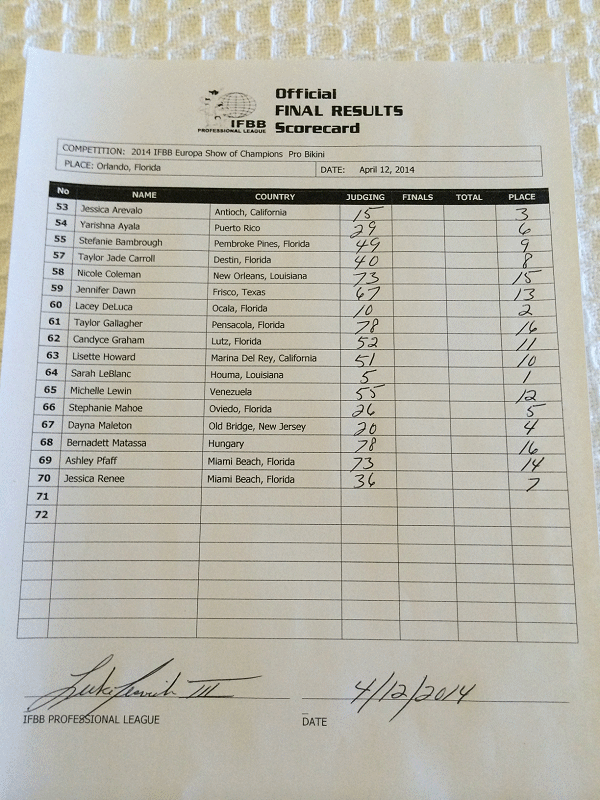 IFBB
PROFESSIONAL LEAGUE
Official
FINAL RESULTS
Scorecard
COMPETITION: 2014 IFBB Europa Show of Champions Pro Bikini
PLACE: Orlando, Florida DATE: April 12, 2014
No NAME COUNTRY JUDGING FINALS TOTAL PLACE
53 Jessica Arevalo Antioch, California 15 3
54 Yarishna Ayala Puerto Rico 29 6
55 Stefanie Bambrough Pembroke Pines, Florida 49 9
57 Taylor Jade Carroll Destin, Florida 40 8
58 Nicole Coleman New Orleans, Louisiana 73 15
59 Jennifer Dawn Frisco, Texas 67 13
60 Lacey DeLuca Ocala, Florida 10 2
61 Taylor Gallagher Pensacola, Florida 78 16
62 Candyce Graham Lutz, Florida 52 11
63 Lisette Howard Marina Del Rey, California 51 10
64 Sarah LeBlanc Houma, Louisiana 5 1
65 Michelle Lewin Venezuela 55 12
66 Stephanie Mahoe Oviedo, Florida 26 5
67 Dayna Maleton Old Bridge, New Jersey 20 4
68 Bernadett Matassa Hungary 78 16
69 Ashley Pfaff Miami Beach, Florida 73 14
70 Jessica Renee Miami Beach, Florida 36 7
71
72
III 4/12/2014
IFBB PROFESSIONAL LEAGUE DATE